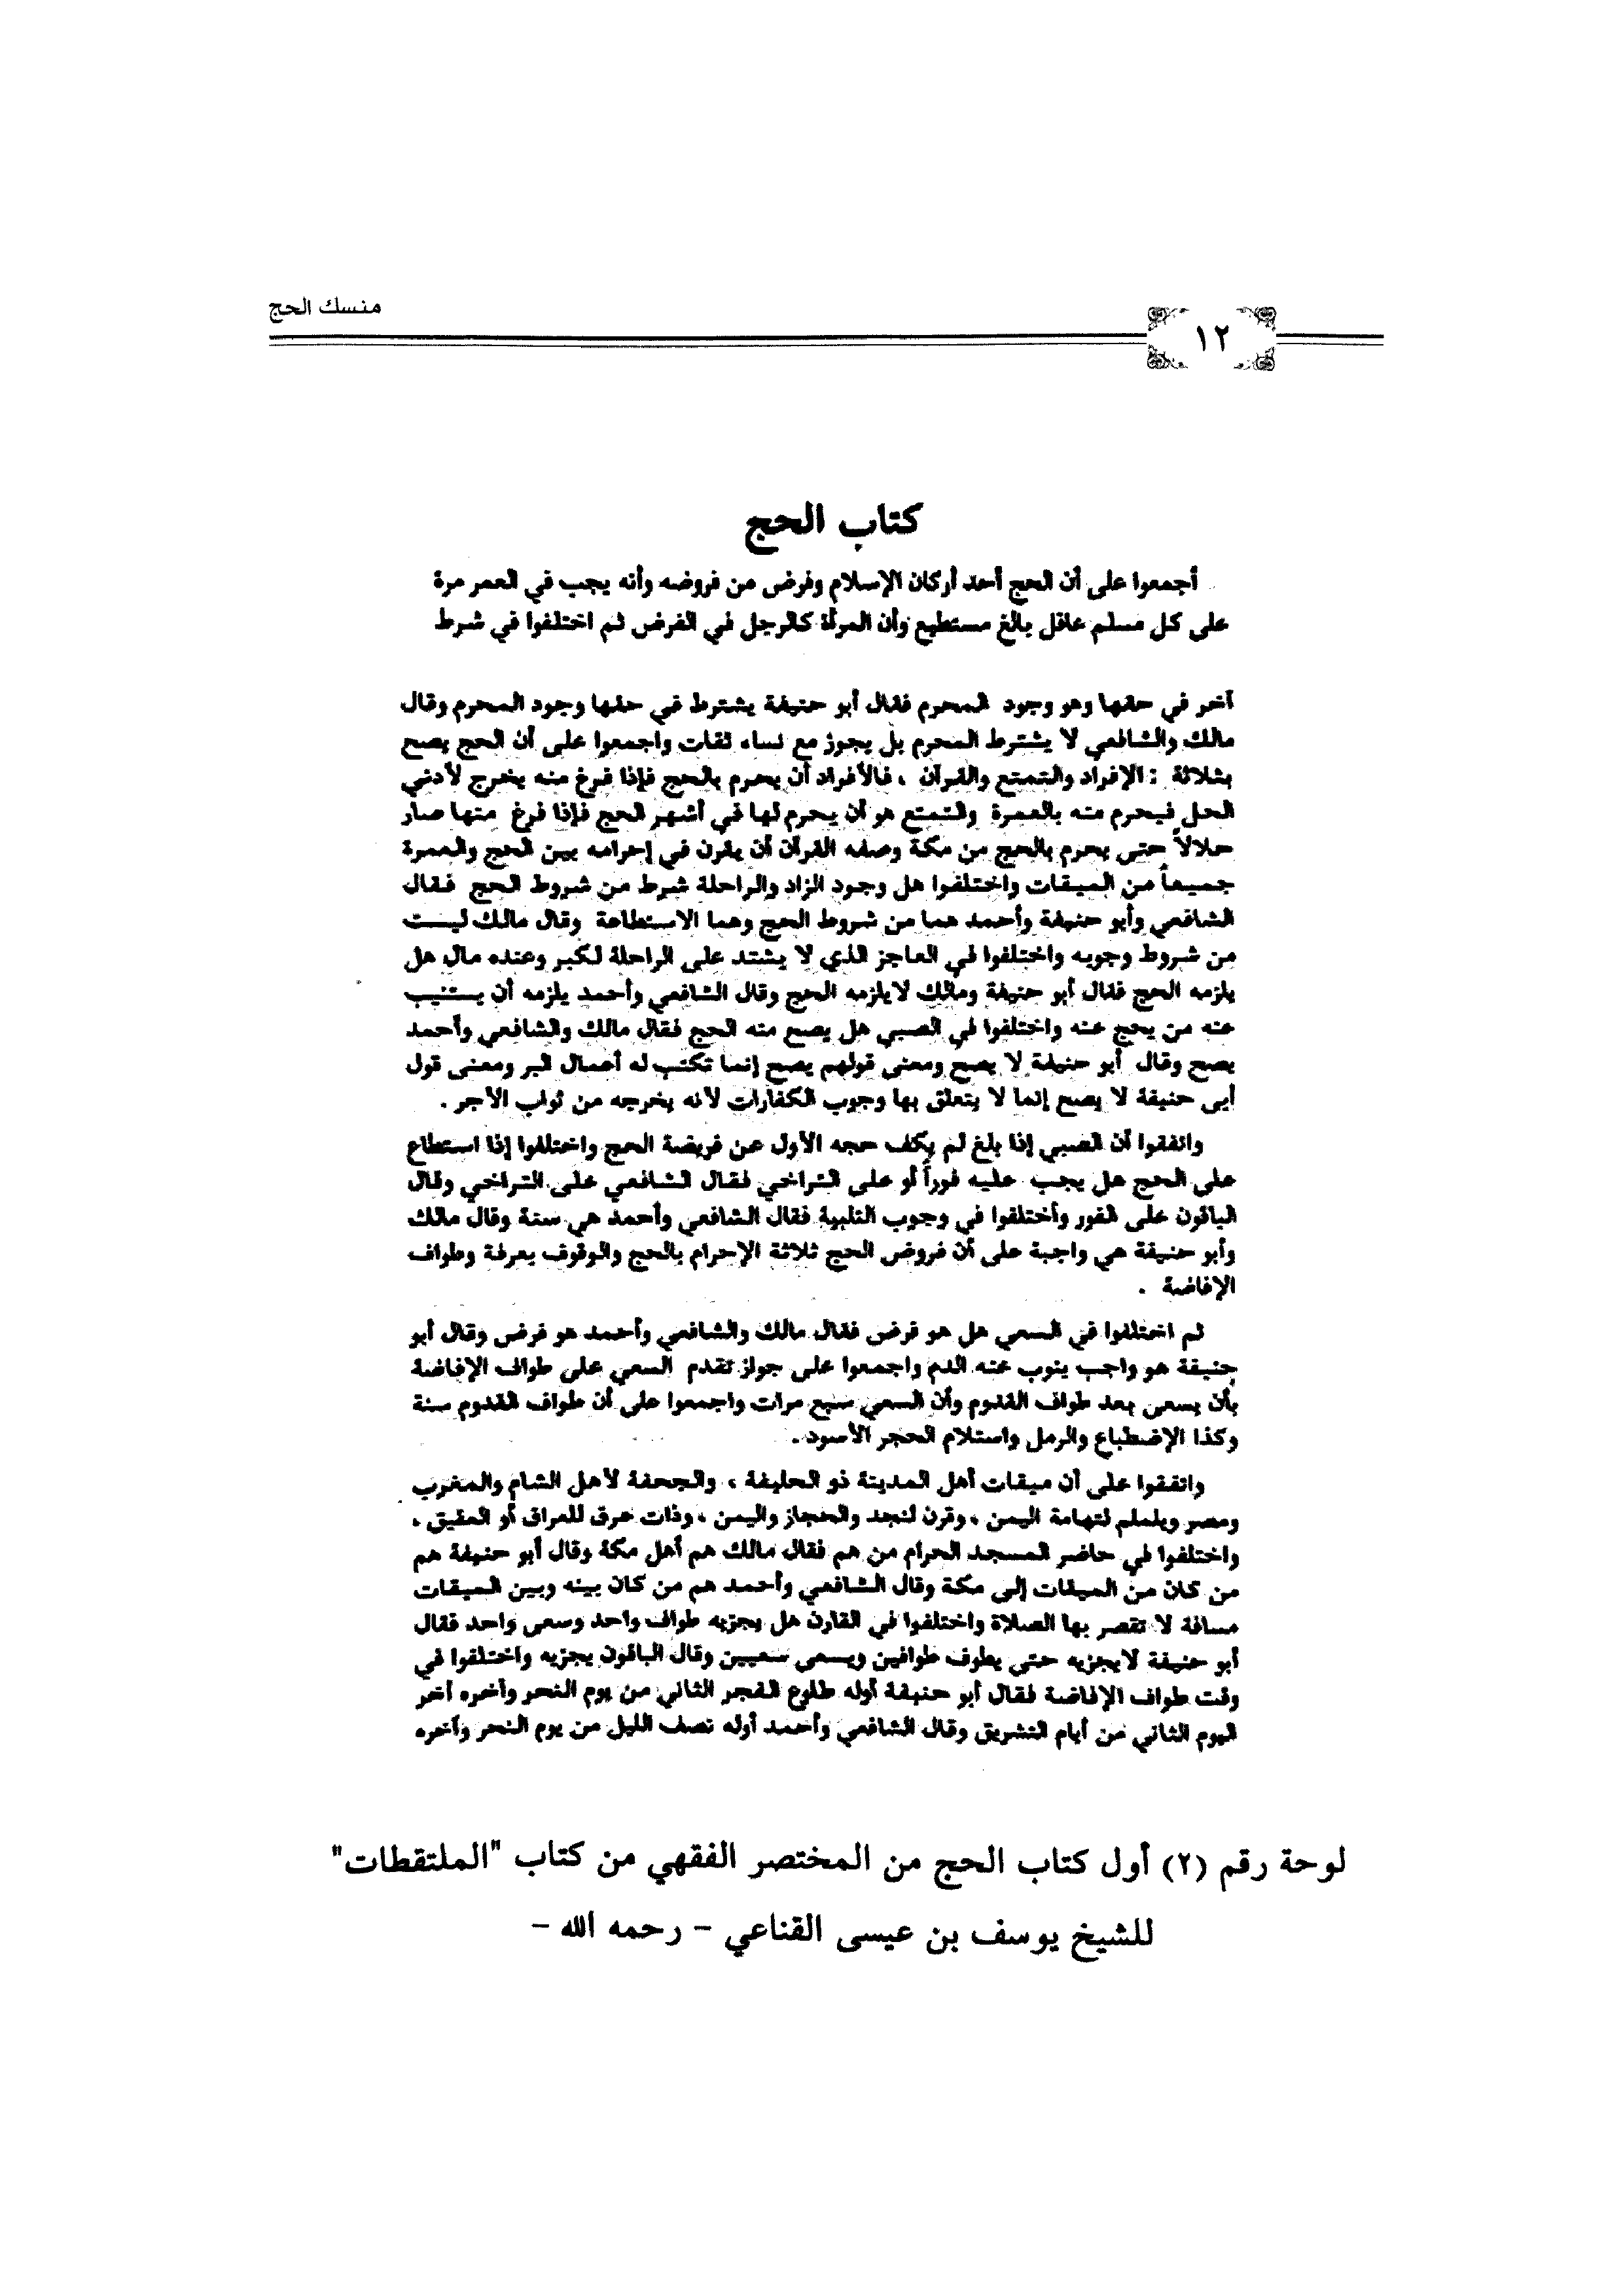 منسك الحج
١٢
كتاب الحج
أجمعوا على أن الحج أحد أركان الإسلام وفرض من فروضه وأنه يجب في العمر مرة
على كل مسلم عاقل بالغ مستطيع وأن المرأة كالرجل في الفرض ثم اختلفوا في شرط
آخر في حقها وهو وجود المحرم فقال أبو حنيفة يشترط في حقها وجود المحرم وقال
مالك والشافعي لا يشترط المحرم بل يجوز مع نساء ثقات واجمعوا على أن الحج يصح
بثلاثة : الإفراد والتمتع والقرآن ، فالأفراد أن يحرم بالحج فإذا فرغ منه يخرج لأدنى
الحل فيحرم منه بالعمرة والتمتع هو أن يحرم لها في أشهر الحج فإذا فرغ منها صار
حلالاً حتى يحرم بالحج من مكة وصفه القرآن أن يقرن في إحرامه بين الحج والعمرة
جميعاً من الميقات واختلفوا هل وجود الزاد والراحلة شرط من شروط الحج فقال
الشافعي وأبو حنيفة وأحمد هما من شروط الحج وهما الاستطاعة وقال مالك ليست
من شروط وجوبه واختلفوا في العاجز الذي لا يشتد على الراحلة لكبر وعنده مال هل
يلزمه الحج فقال أبو حنيفة ومالك لايلزمه الحج وقال الشافعي وأحمد يلزمه أن يستنيب
عنه من يحج عنه واختلفوا في الصبي هل يصح منه الحج فقال مالك والشافعي وأحمد
يصح وقال أبو حنيفة لا يصح ومعنى قولهم يصح إنما تكتب له أعمال البر ومعنى قول
أبى حنيفة لا يصح إنما لا يتعلق بها وجوب الكفارات لأنه يخرجه من ثواب الأجر .
واتفقوا أن الصبي إذا بلغ لم يكف حجه الأول عن فريضة الحج واختلفوا إذا استطاع
على الحج هل يجب عليه فوراً أو على التراخي فقال الشافعي على التراخي وقال
الباقون على الفور وأختلفوا في وجوب التلبية فقال الشافعي وأحمد هي سنة وقال مالك
وأبو حنيفة هي واجبة على أن فروض الحج ثلاثة الإحرام بالحج والوقوف بعرفة وطواف
الإفاضة .
ثم اختلفوا في السعي هل هو فرض فقال مالك والشافعي وأحمد هو فرض وقال أبو
حنيفة هو واجب ينوب عنه الدم واجمعوا على جواز تقدم السعي على طواف الإفاضة
بأن يسعى بعد طواف القدوم وأن السعي سبع مرات واجمعوا على أن طواف القدوم سنة
وكذا الإضطباع والرمل واستلام الحجر الأسود .
واتفقوا على أن ميقات أهل المدينة ذو الحليفة ، والجحفة لأهل الشام والمغرب
ومصر ويلملم لتهامة اليمن ، وقرن لنجد والحجاز واليمن ، وذات عرق للعراق أو العقيق ،
واختلفوا في حاضر المسجد الحرام من هم فقال مالك هم أهل مكة وقال أبو حنيفة هم
من كان من الميقات إلى مكة وقال الشافعي وأحمد هم من كان بينه وبين الميقات
مسافة لا تقصر بها الصلاة واختلفوا في القارن هل يجزيه طواف واحد وسعى واحد فقال
أبو حنيفة لايجزيه حتى يطوف طوافين ويسعى سعيين وقال الباقون يجزيه واختلفوا في
وقت طواف الإفاضة فقال أبو حنيفة أوله طلوع الفجر الثاني من يوم النحر وآخره آخر
اليوم الثاني من أيام التشريق وقال الشافعي وأحمد أوله نصف الليل من يوم النحر وآخره
لوحة رقم (٢) أول كتاب الحج من المختصر الفقهي من كتاب "الملتقطات"
للشيخ يوسف بن عيسى القناعي - رحمه الله -